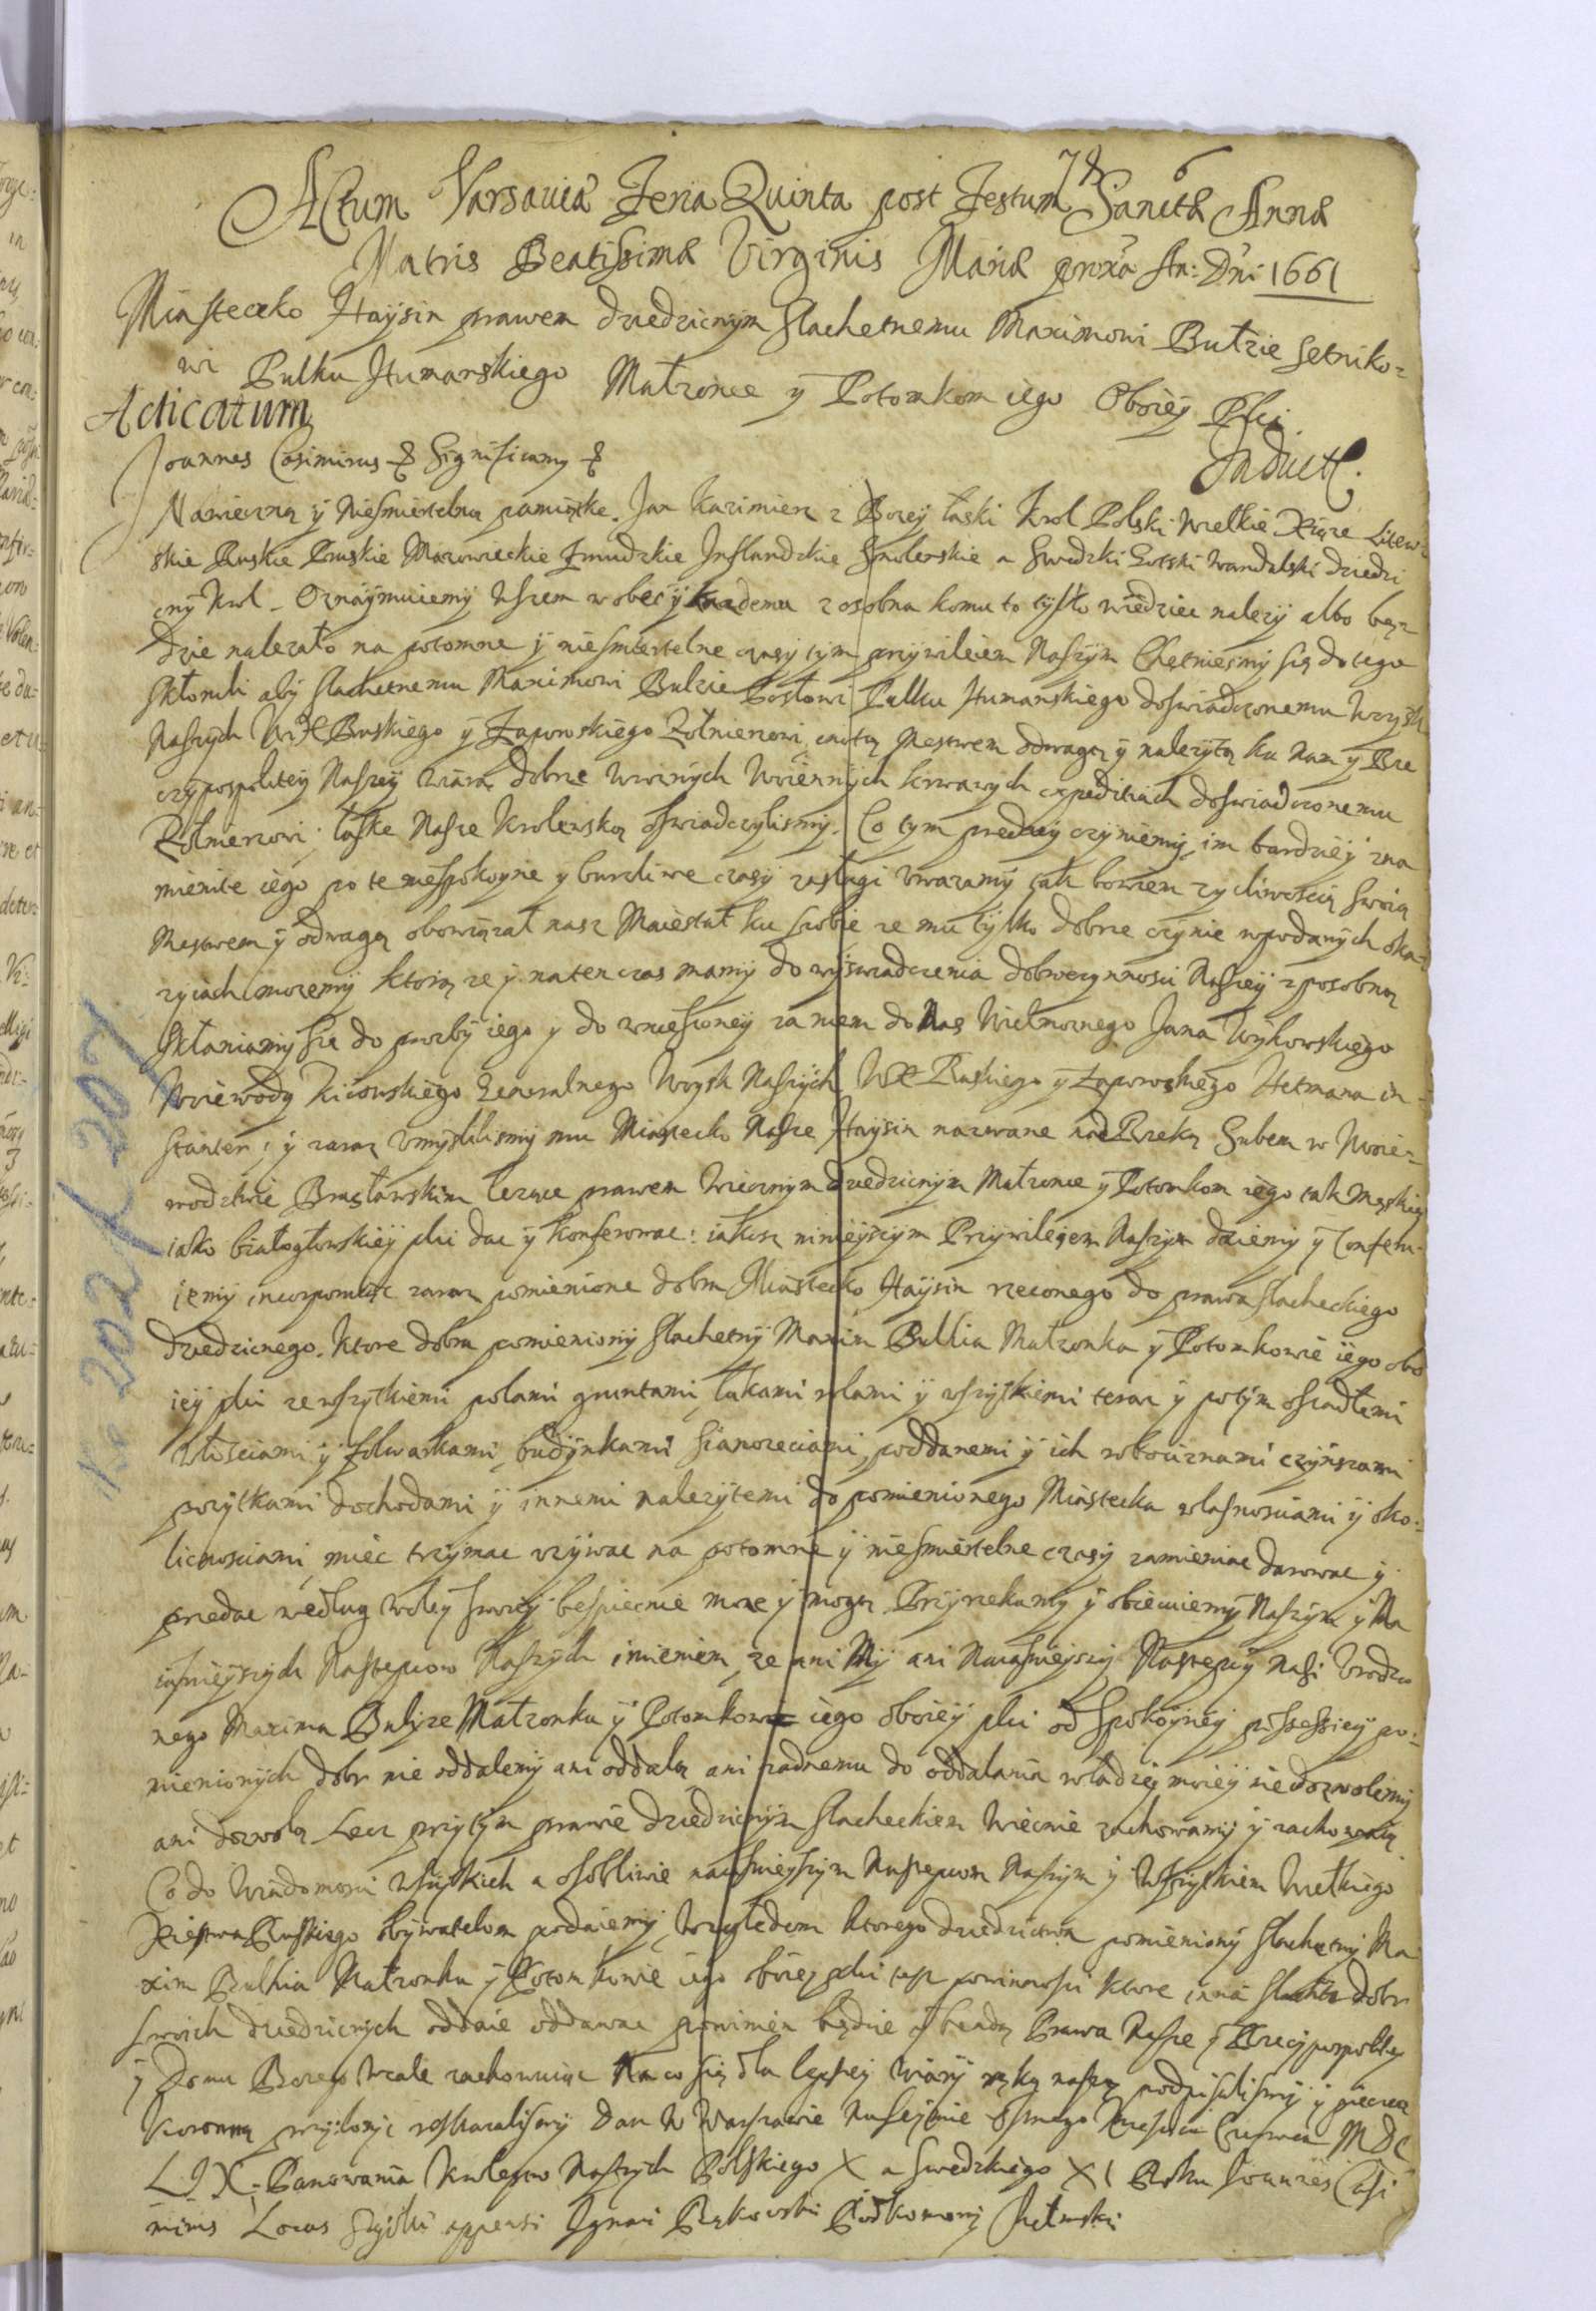 Actum Varsaviæ Feria Quinta post Festum Sanctæ Annæ
Matris Beatissimæ Virginis Mariæ prox̃a An: Dni 1661
Miasteczko Haysin prawem dziedzicznym slachetnemu Maximowi Bułzie Setniko=
wi Pulku Humanskiego Małzonce y Potomkom iego Oboiey Płci.
Acticatum
Inductẽ.
Joannes Casimirus & Significamy &
Na wieczną y niesmiertelną pamiątke. Jan Kazimierz z Bozey łaski Krol Polski Wielkie Xiąze Litew=
skie Ruskie Pruskie Mazowieckie Zmudzkie Inflandzkie Smolenskie a Swedzki Gotski Wandalski dziedzi
czny Krol. Oznaymuiemy wszem wobec y kazdemu z osobna komu to tylko wiedziec nalezy albo bęz
dzie nalezało na potomne y niesmiertelne czasy tym przywileiem Naszym Chętniesmy się do tego
skłonili aby slachetnemu Maximowi Bulzie Posłowi Pulku Humanskiego doswiadczonemu Woysk
Naszych WX Ruskiego y Zaporoskiego Zołnierzowi cnotą Męstwem odwagą y nalezytą ku Nam y Rze
czypospolitey Naszey wiarą dobrze w roznych woiennych krwawych expeditiach doswiadczonemu
Zołnierzowi łaske Nasze Krolewską oswiadczylismy. Co tym prędzey czyniemy im bardziey zna
mienite iego po te niespokoyne y burzliwe czasy zasługi uwazamy tak bowiem zycliwoscią swoią
Męstwem y odwagą obowiązał nasz Maiestat ku sobie ze mu tylko dobrze czynic w podanych oka=
zyiach mozemy ktorą ze y na ten czas mamy do wyswiadczenia dobroczynnosci Naszey zposobną
skłaniamy się do prozby iego y do wniesioney za niem do Nas Wielmoznego Jana Wyhowskiego
Woiewody Kiiowskiego Generalnego Woysk Naszych WX Ruskiego y Zaporoskiego Hetmana in=
stantiey; y zaraz umyslilismy mu Miasteczko Nasze Haysin nazwane nad Rzeką Subem w Woie=
wodztwie Bracławskim lezące prawem wiecznym dziedzicznym Małzonce y Potomkom iego tak Męskiey
iako białogłowskiey płci dac y konferowac: iakosz ninieyszym Przywileiem Naszym daiemy y Conferu=
iemy incorporuiąc zaraz pomienione dobra Miasteczko Haysin rzeczonego do prawa slacheckiego
dziedzicznego. Ktore dobra pomieniony slachetny Maxim Bulhia Małzonka y Potomkowie iego obo
iey płci ze wszytkiemi polami gruntami łukami rolami y wszytkiemi teraz y potym osiadłemi
włosciami y folwarkami budynkami sianozęciami poddanemi y ich robociznami czynszami
pozytkami dochodami y innemi nalezytemi do pomienionego Miasteczka własnosciami y oko=
licznosciami miec trzymac uzywac na potomne y niesmiertelne czasy zamieniac darowac y
przedac według woley swoiey bespiecznie moze y mogą Przyrzekamy y obiecuiemy Naszym y Na
iasnieyszych Nastempcow Naszych imieniem ze ani My ani Naiasnieyszy Nastempcy Nasi Urodzo
nego Maxima Bulyze Małzonku y Potomkow iego oboiey płci od spokoyney possessiey po=
mienionych dobr nie oddalemy ani oddalą ani zadnemu do oddalania władzey moiey nie dozwolimy
ani dozwolą Lecz przy tym prawie dziedzicznym slacheckiem wiecznie zachowamy y zachowaią
Co do wiadomosci wszytkich a osobliwie naiasnieyszym Nastempcom Naszym y wszytkiem Wielkiego
Xięstwa Ruskiego obywatelom podaiemy, Względem ktorego dziedzictwa pomieniony slachetny Ma
xim Bulhia Małzonka y Potomkowie iego oboiey płci tesz powinnosci ktore inna slachta dobr
swoich dziedzicznych oddaie oddawac powinien będzie y bendą Prawa Nasze y Rzeczypospolitey
y Domu Bozego wcale zachowuiąc Na co się dla lepszey wiary ręką naszą podpisalismy y pieczec
koronną przylozyc roskazalismy Dan w Warszawie na Seymie osmego Miesiąca Czerwca MDC
LIX. Panowania Krolestw Naszych Polskiego X a Swedzkiego XI Roku Joannes Casi
mirus Locus Sigilli appensi Ignaci Bąkowski Podkomorzy Chełmski